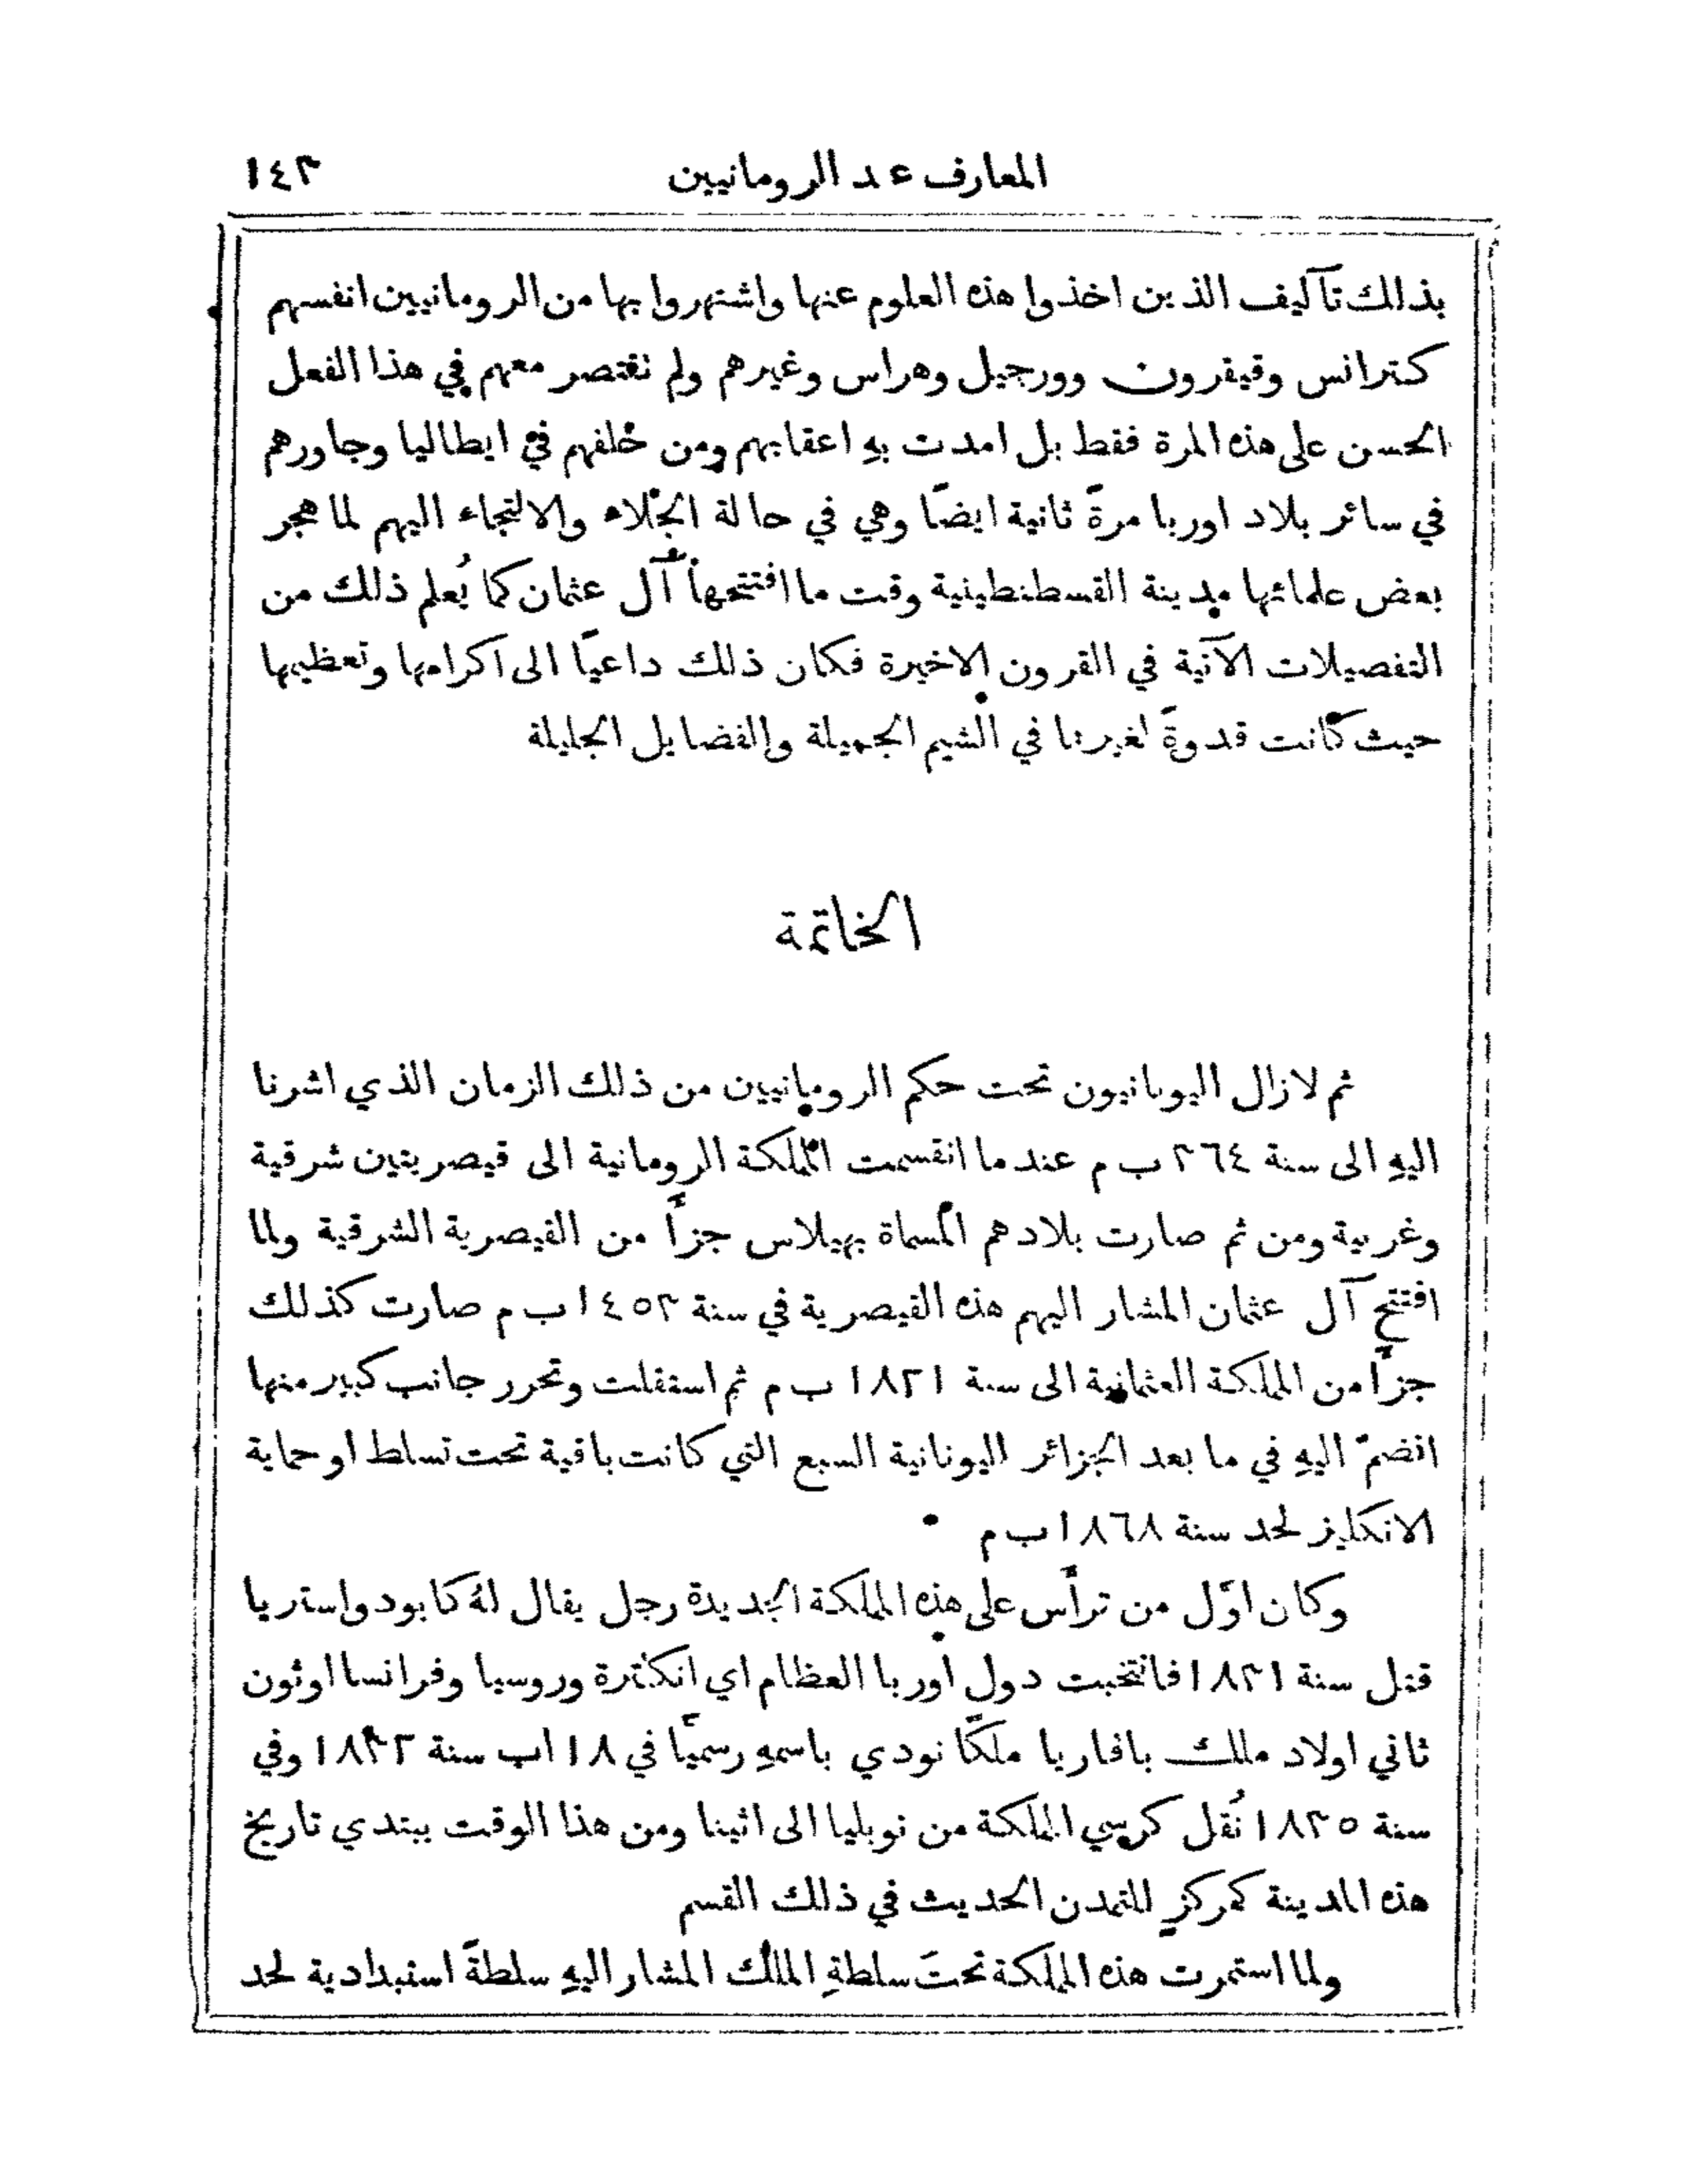 المعارف عند الرومانيين ١٤٣
بذلك تآليف الذين اخذوا هذه العلوم عنها واشتهروا بها من الرومانيين انفسهم
كترانس وقيقرون وورجيل وهراس وغيرهم ولم نقتصر معهم في هذا الفعل
الحسن على هذه المرة فقط بل امدت بهِ اعقابهم ومن خلفهم في ايطاليا وجاورهم
في سائر بلاد اوربا مرةً ثانية ايضًا وهي في حالة الجلاء والالتجاء اليهم لما هجر
بعض علمائها مدينة القسطنطينية وقت ما افتتحها آل عثمان كما يُعلم ذلك من
التفصيلات الآتية في القرون الاخيرة فكان ذلك داعيًا الى اكرامها وتعظيمها
حيث كانت قدوةً لغيرنا في الشيم الجميلة والفضايل الجليلة
الخاتمة
ثم لازال اليونانيون تحت حكم الرومانيين من ذلك الزمان الذي اشرنا
اليهِ الى سنة ٣٦٤ ب م عند ما انقسمت المملكة الرومانية الى قيصريتين شرقية
وغربية ومن ثم صارت بلادهم المسماة بهيلاس جزأً من القيصرية الشرقية ولما
افتتح آل عثمان المشار اليهم هذه القيصرية في سنة ١٤٥٣ ب م صارت كذلك
جزأً من المملكة العثمانية الى سنة ١٨٢١ ب م ثم استقلت وتحرر جانب كبير منها
انضمّ اليهِ في ما بعد الجزائر اليونانية السبع التي كانت باقية تحت تسلط او حماية
الانكليز لحد سنة ١٨٦٨ ب م
وكان اوّل من ترأَّس على هذه المملكة الجديدة رجل يقال لهُ كابود واستريا
قتل سنة ١٨٣١ فانتخبت دول اوربا العظام اي انكلترة وروسيا وفرانسا اوثون
ثاني اولاد ملك بافاريا ملكًا نودي باسمهِ رسميًّا في ١٨ اب سنة ١٨٣٢ وفي
سنة ١٨٣٥ نُقل كرسي المملكة من نوبليا الى اثينا ومن هذا الوقت يبتدي تاريخ
هذه المدينة كمركزٍ للتمدن الحديث في ذلك القسم
ولما استمرت هذه المملكة تحتَ سلطةِ الملك المشار اليهِ سلطةً استبدادية لحد